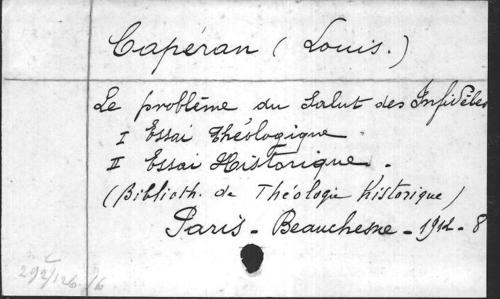 Capéran (Louis.)
Le problème du Salut des Infidèles
I Essai Théologique
II Essai Historique.
(Biblioth. de Théologie historique)
Paris - Beauchesne - 1912 - 8
292/126.16